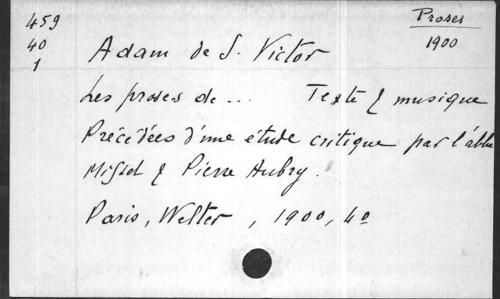 459
40
1
Proses
1900
Adam de S. Victor
Les proses de ... Texte & musique
Précédées d'une étude critique par l'abbé
Misset & Pierre Aubry.
Paris, Welter, 1900, 4o